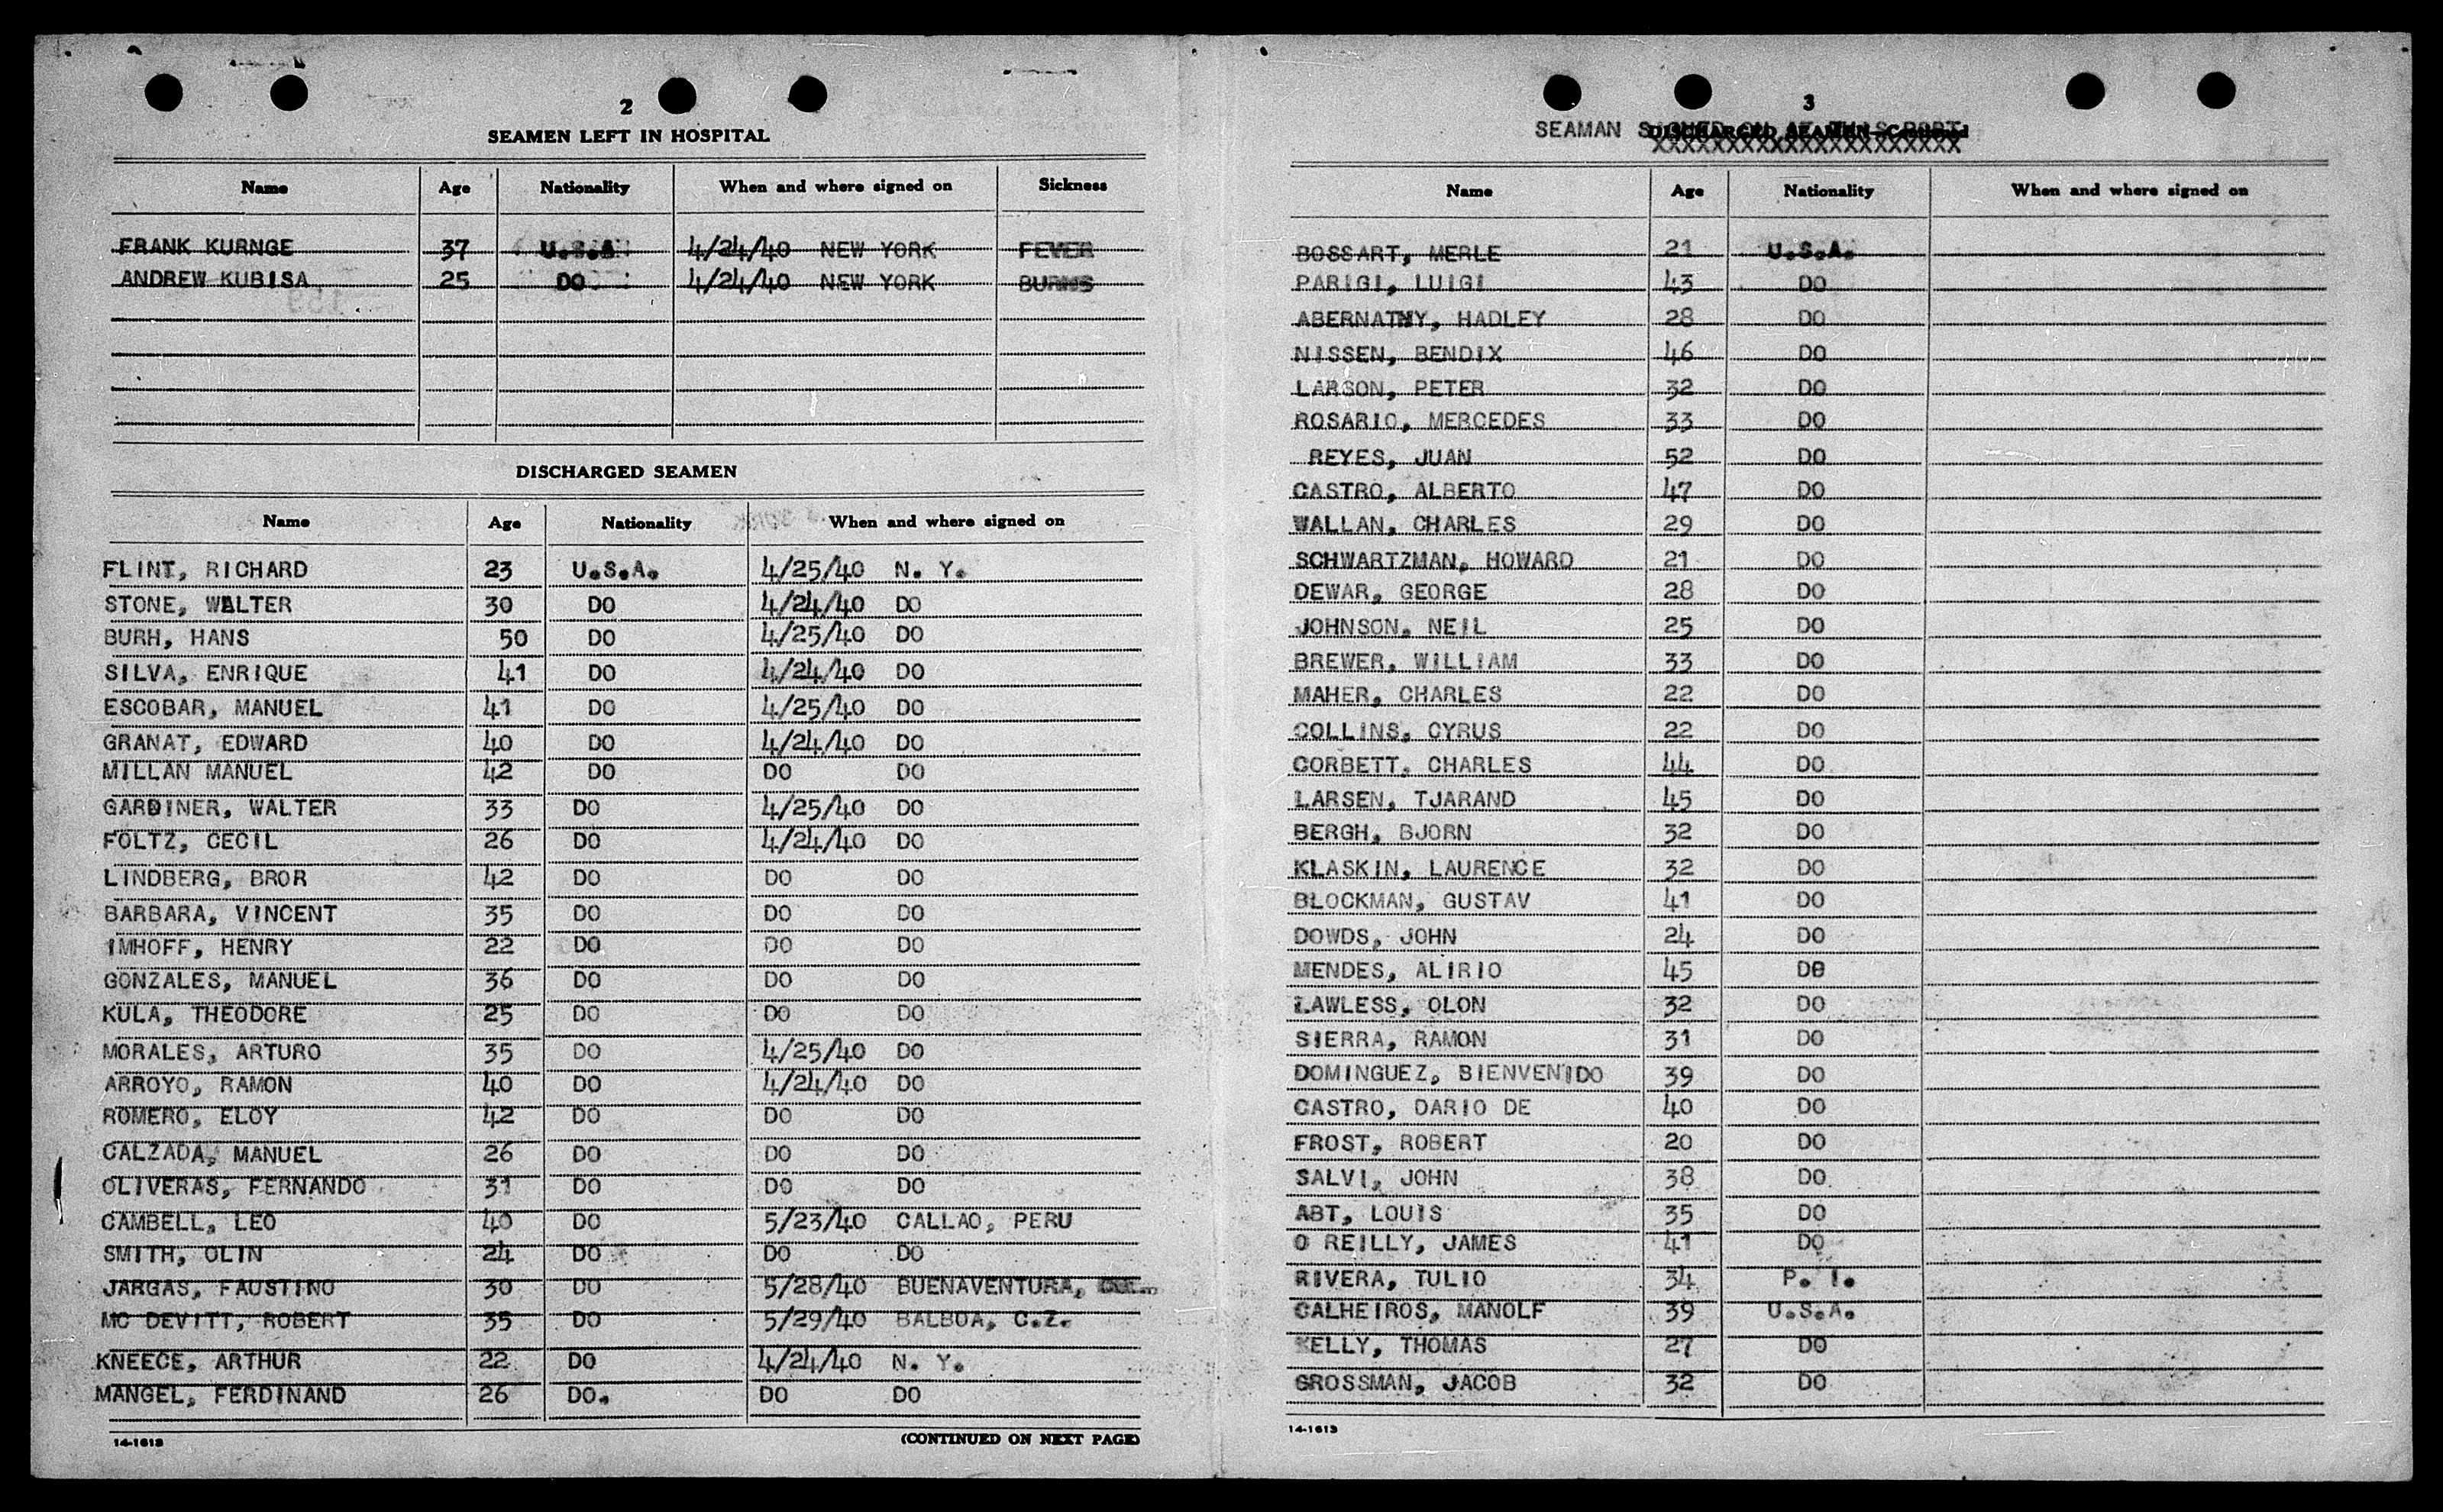 2
SEAMEN LEFT IN HOSPITAL
Name Age Nationality When and where signed on Sickness
FRANK KURNGE 37 U.S.A 4/24/40 NEW YORK FEVER
ANDREW KUBISA 25 DO 4/24/40 NEW YORK BURNS
DISCHARGED SEAMEN
Name Age Nationality When and where signed on
FLINT, RICHARD 23 U.S.A. 4/25/40 N. Y.
STONE, WALTER 30 DO 4/24/40 DO
BURH, HANS 50 DO 4/25/40 DO
SILVA, ENRIQUE 41 DO 4/24/40 DO
ESCOBAR, MANUEL 41 DO 4/25/40 DO
GRANAT, EDWARD 40 DO 4/24/40 DO
MILLAN MANUEL 42 DO DO DO
GARDINER, WALTER 33 DO 4/25/40 DO
FOLTZ, CECIL 26 DO 4/24/40 DO
LINDBERG, BROR 42 DO DO DO
BARBARA, VINCENT 35 DO DO DO
IMHOFF, HENRY 22 DO DO DO
GONZALES, MANUEL 36 DO DO DO
KULA, THEODORE 25 DO DO DO
MORALES, ARTURO 35 DO 4/25/40 DO
ARROYO, RAMON 40 DO 4/24/40 DO
ROMERO, ELOY 42 DO DO DO
CALZADA, MANUEL 26 DO DO DO
OLIVERAS, FERNANDO 31 DO DO DO
CAMBELL, LEO 40 DO 5/23/40 CALLAO, PERU
SMITH, OLIN 24 DO DO DO
JARGAS, FAUSTINO 30 DO 5/28/40 BUENAVENTURA,
MC DEVITT, ROBERT 35 DO 5/29/40 BALBOA, C.Z.
KNEECE, ARTHUR 22 DO 4/24/40 N. Y.
MANGEL, FERDINAND 26 DO. DO DO
14-1613 (CONTINUED ON NEXT PAGE)
3
SEAMAN SIGNED ON AT THIS PORT
DISCHARGED SEAMEN—Continued
XXXXXXXXXXXXXXXXXXXXX
Name Age Nationality When and where signed on
BOSSART, MERLE 21 U.S.A.
PARIGI, LUIGI 43 DO
ABERNATHY, HADLEY 28 DO
NISSEN, BENDIX 46 DO
LARSON, PETER 32 DO
ROSARIO, MERCEDES 33 DO
REYES, JUAN 52 DO
CASTRO, ALBERTO 47 DO
WALLAN, CHARLES 29 DO
SCHWARTZMAN, HOWARD 21 DO
DEWAR, GEORGE 28 DO
JOHNSON, NEIL 25 DO
BREWER, WILLIAM 33 DO
MAHER, CHARLES 22 DO
COLLINS, CYRUS 22 DO
CORBETT, CHARLES 44 DO
LARSEN, TJARAND 45 DO
BERGH, BJORN 32 DO
KLASKIN, LAURENCE 32 DO
BLOCKMAN, GUSTAV 41 DO
DOWDS, JOHN 24 DO
MENDES, ALIRIO 45 DO
LAWLESS, OLON 32 DO
SIERRA, RAMON 31 DO
DOMINGUEZ, BIENVENIDO 39 DO
CASTRO, DARIO DE 40 DO
FROST, ROBERT 20 DO
SALVI, JOHN 38 DO
ABT, LOUIS 35 DO
O REILLY, JAMES 41 DO
RIVERA, TULIO 34 P. I.
CALHEIROS, MANOLF 39 U.S.A.
KELLY, THOMAS 27 DO
GROSSMAN, JACOB 32 DO
14-1613